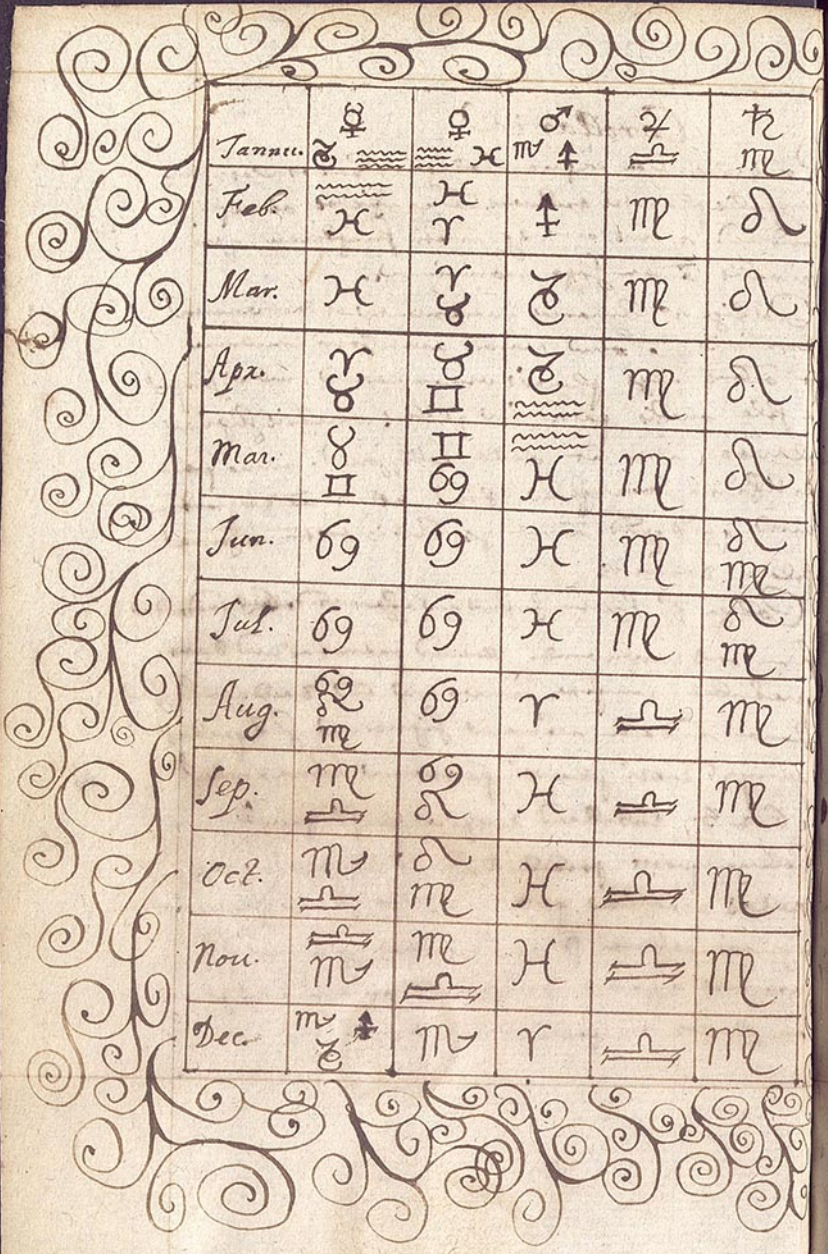 ☿ ♀ ♂ ♃ ♄
Jannu. ♑ ♒ ♒ ♓ ♏ ♐ ♎ ♍
Feb. ♒ ♓ ♓ ♈ ♐ ♍ ♌
Mar. ♓ ♈ ♉ ♑ ♍ ♌
Apr. ♈ ♉ ♉ ♊ ♑ ♒ ♍ ♌
Mar. ♉ ♊ ♊ ♋ ♒ ♓ ♍ ♌
Jun. ♋ ♋ ♓ ♍ ♌ ♍
Jul. ♋ ♋ ♓ ♍ ♌ ♍
Aug. ♋ ♌ ♍ ♋ ♈ ♎ ♍
Sep. ♍ ♎ ♋ ♌ ♓ ♎ ♍
Oct. ♏ ♎ ♌ ♍ ♓ ♎ ♍
Nou. ♎ ♏ ♍ ♎ ♓ ♎ ♍
Dec. ♏ ♐ ♑ ♏ ♈ ♎ ♍